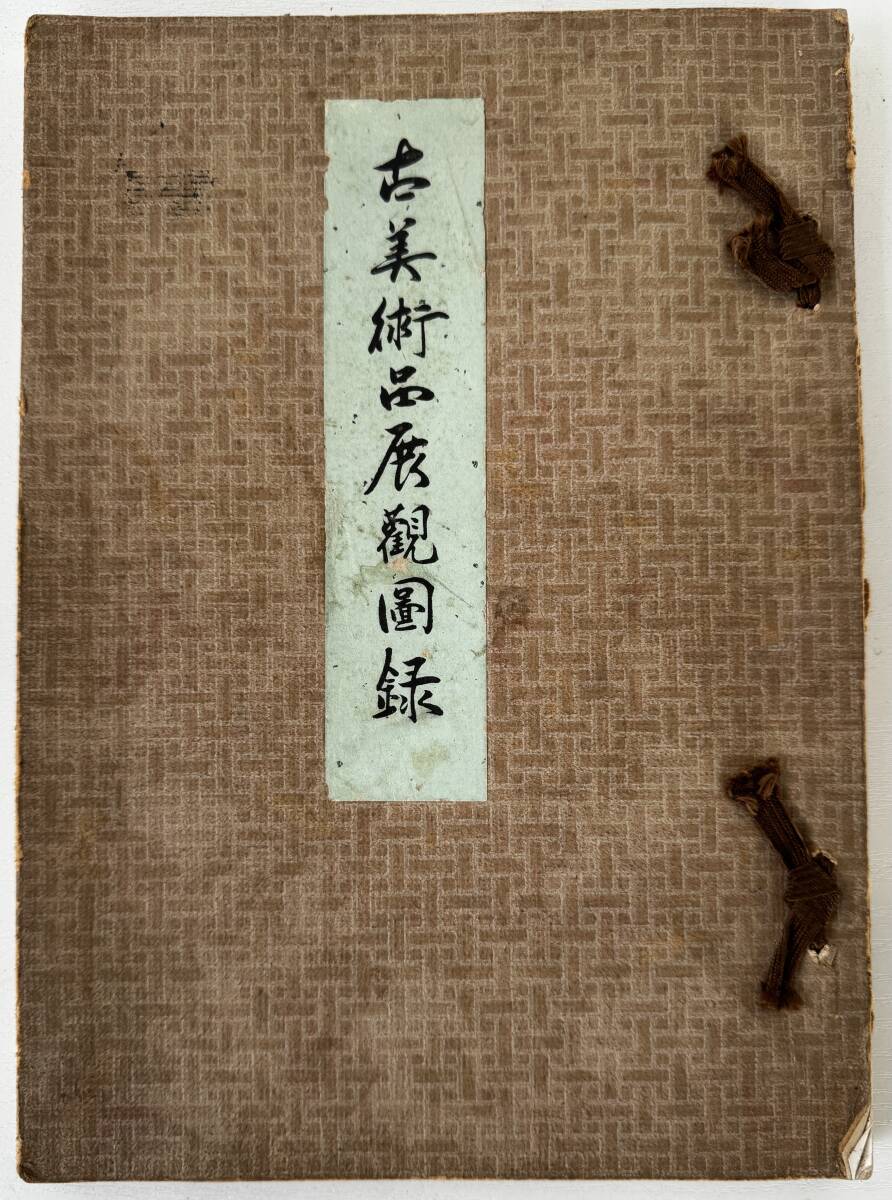 古美術品展觀圖録